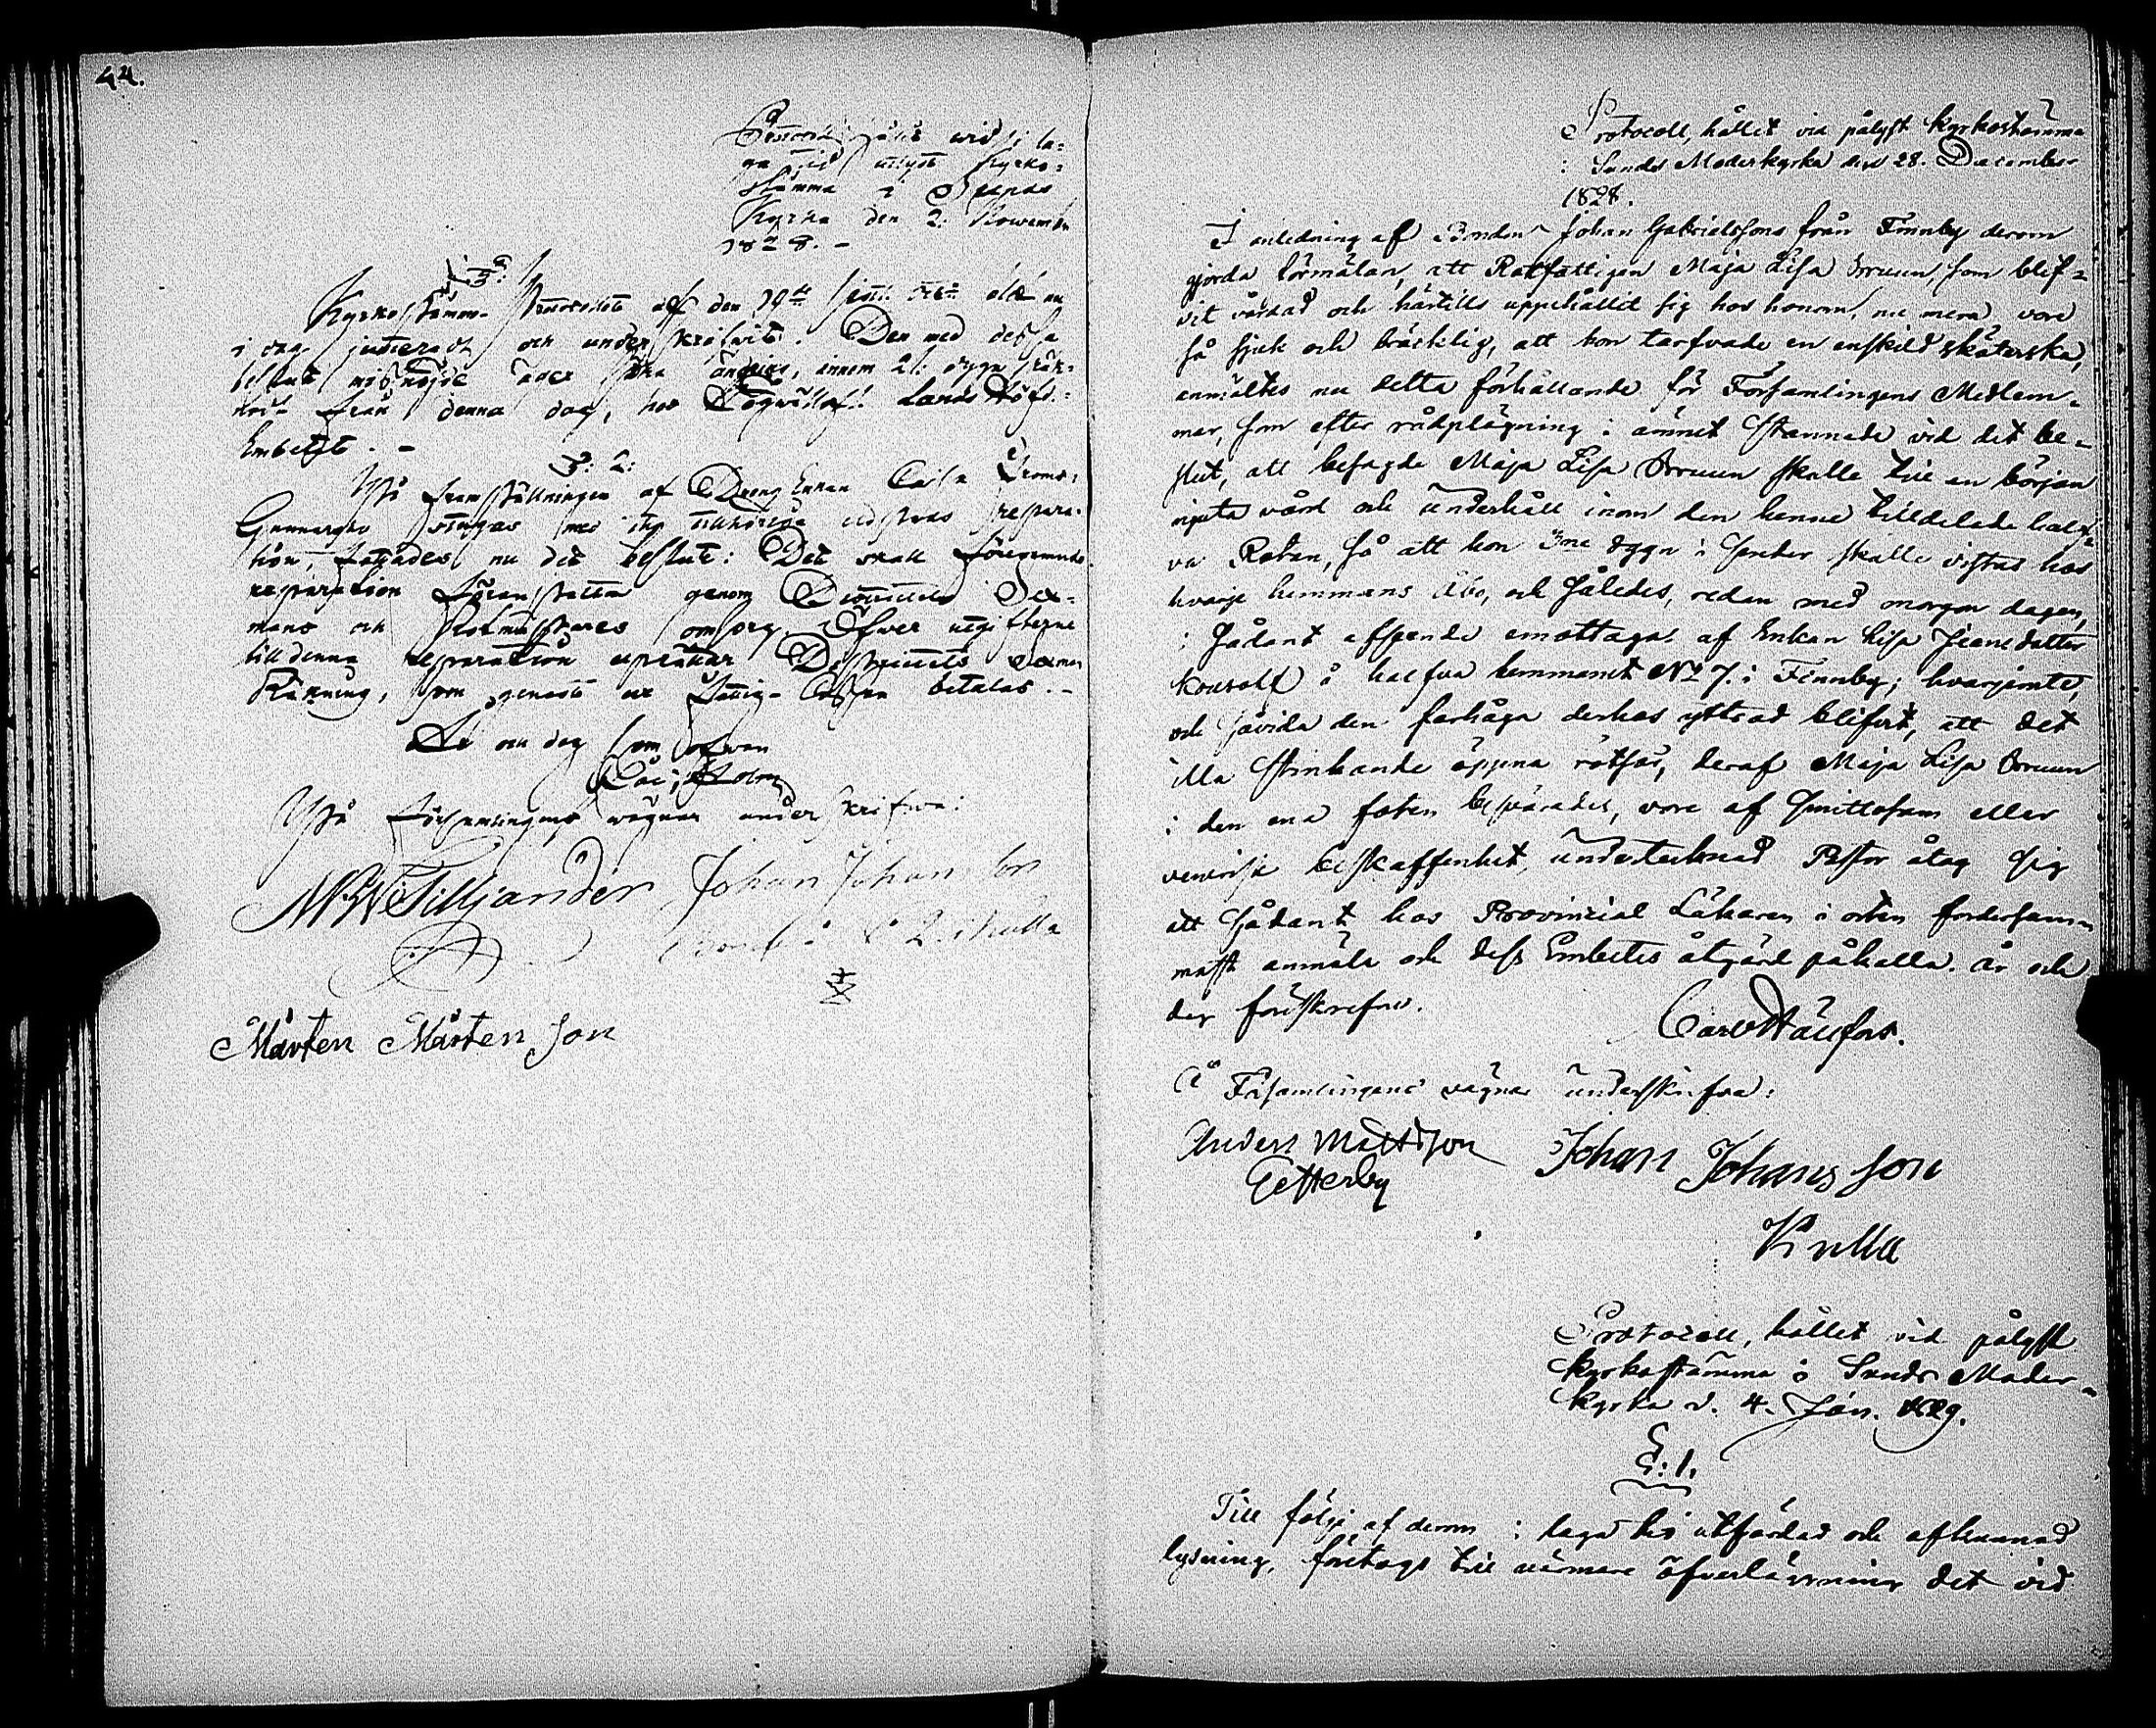 44.
Protocoll hållit wid i la=
ga tid utlyst Kyrko=
stämma i Sunds
Kyrka den 2. Novemb.
1828. -
Kyrkostämmo- Protocollet af den 19de sistl. Octr blef nu
i dag justeradt och underskrifwit. Den med dessa
beslut misnöjde äger söka ändring, innom 21 dygn räk=
nadt från denna dag, hos Landshöfd.=
Embetet. -
§: 2:
På framställningen af
Gunnarsby stugas
tion, fattades nu det beslut: Det skall föregående
reparation genom Sex=
mans och Rotmästares omsorg. Öfwer utgifterne
till denna reparation uprättar Sexman
Räkning, som genast ur Fattig-Cassan betalas. -
År och dag som ofwan
På Församlingens wägnar underskrifwa:
Tilljander Johan Johansson
Kulla
Mårten Mårtensson
Protocoll, hållet vid pålyst Kyrkostämma
i Sunds Moderkyrka den 28. December
1828.
I anledning af Bonden Johan Gabrielssons från Finnby derom
gjorda förmälan, att Rotfattigen Maja Lisa Bruun, som blif=
vit vårdad och härtills uppehållit sig hos honom, nu mera vore
så sjuk och bräcklig, att hon tarfvade en enskild skäterska,
anmältes nu detta förhållande för Församlingens Medlem=
mar, som efter rådplägning i ämnet stannade vid det be=
slut, att besagde Maja Lisa Bruun skulle till en början
njuta vård och underhåll inom den henne tilldelade half=
va Rotan, så att hon 3ne dygn i sender skulle vistas hos
hvarje hemmans Åbo, och således, redan med morgon dagen,
i sådant afseende emottagas af Enkan Lisa Jeansdotter
å halfva hemmanet No 7. i Finnby; hvarjemte,
och såvida den farhåga derhos yttrad blifvit, att det
illa stinkande öppna rötsår, deraf Maja Lisa Bruun
i den ena foten besvärades, vore af smittosam eller
venerisk beskaffenhet, undertecknad Pastor åtog sig
att sådant hos Provincial Läkaren i orten fordersam=
mast anmäla och dess Embetes åtgärd påkalla. År och
dag föreskrefne.
Carl Hällfors.
Å Församlingens vägnar underskrifva:
Anders Mattsson Johan Johansson
Getterby
Kulla
Protocoll, hållet vid pålyst
Kyrkostämma i Sunds Moder=
kyrka d. 4. Jan. 1829.
§: 1.
Till följe af derom i laga tid utfärdad och afkunnad
lysning, företogs till närmare öfverläggning det vid